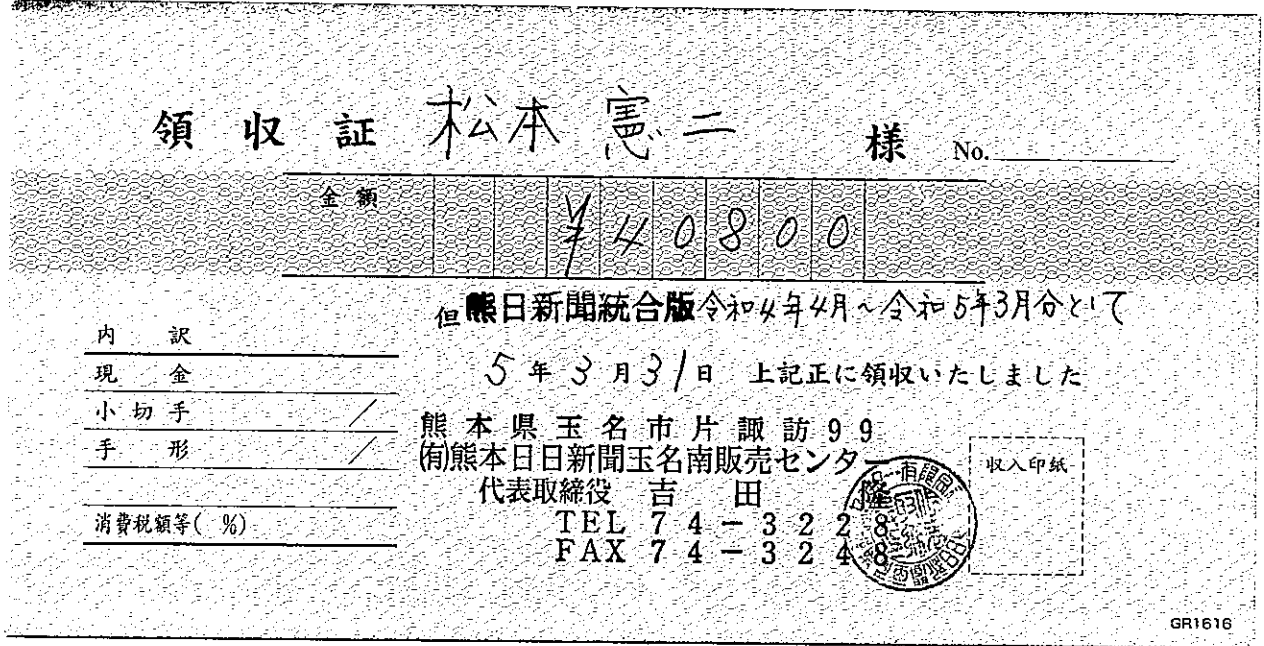 領収証 松本憲二 様 No.
金額 ¥40800
但 熊日新聞統合版 令和4年4月～令和5年3月分として
内訳
現金
小切手
手形
消費税額等( %)
5年3月31日 上記正に領収いたしました
熊本県玉名市片諏訪99
(有)熊本日日新聞玉名南販売センター
代表取締役 吉田 隆
TEL 74-3228
FAX 74-3248
収入印紙
GR1616